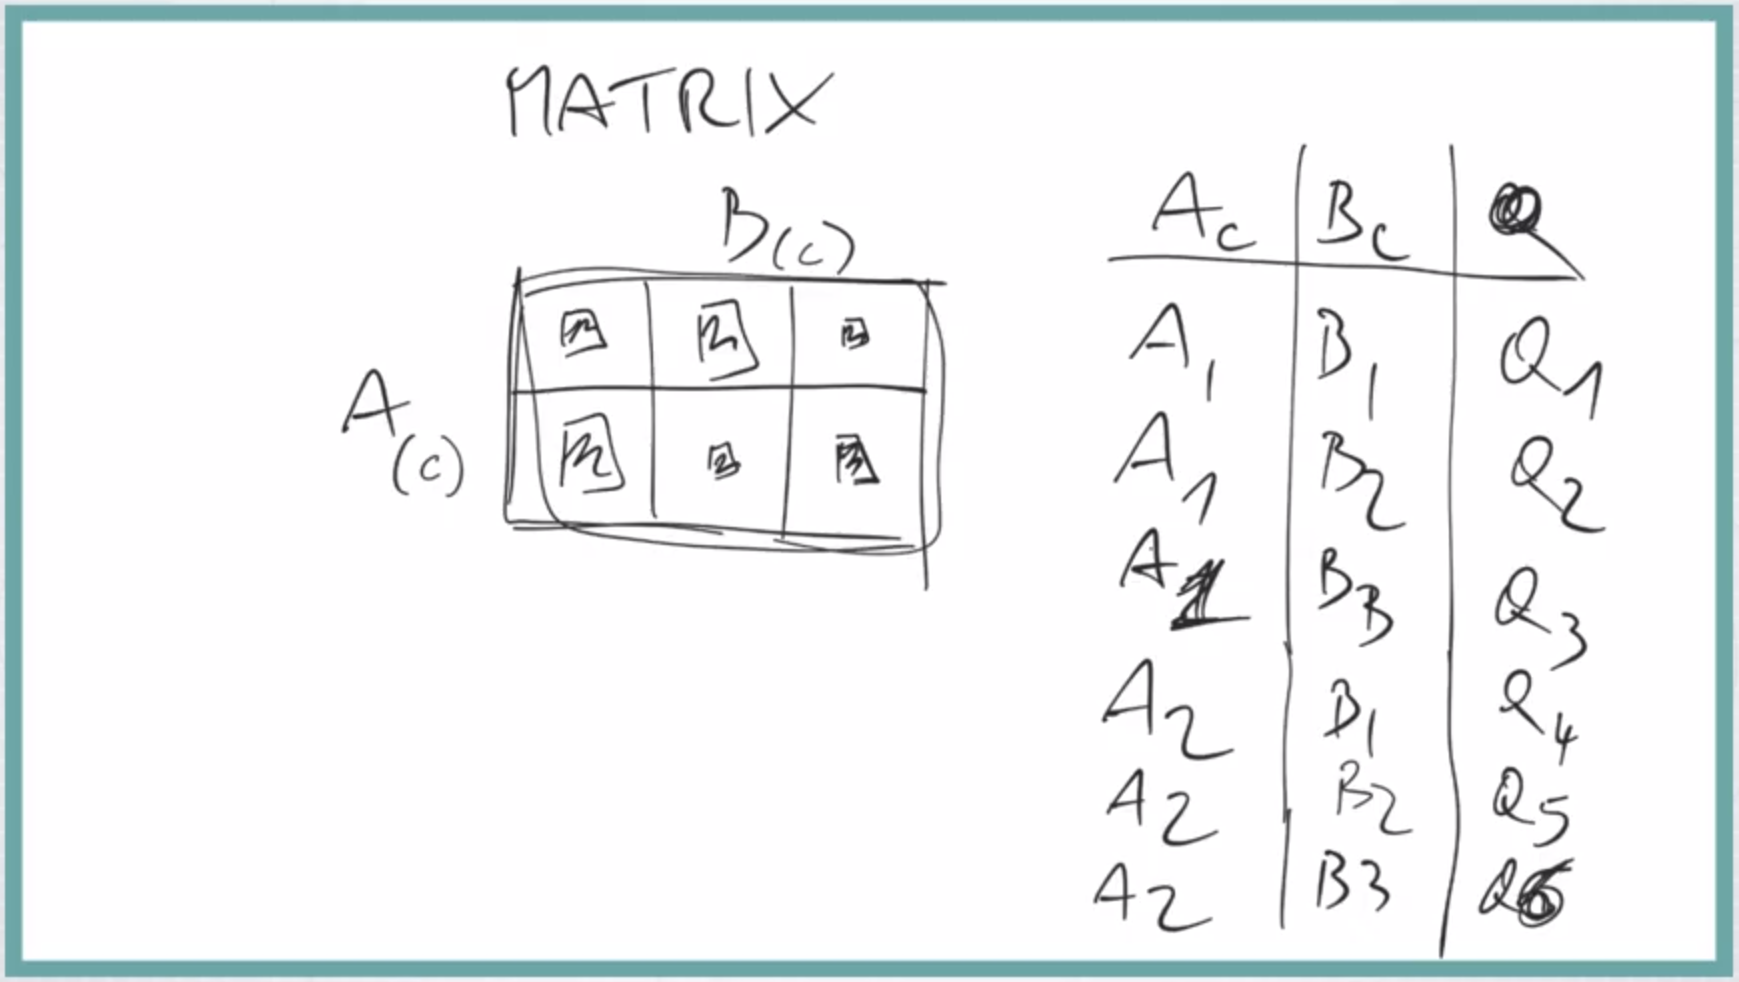 MATRIX
B(c)
A(c)
Ac Bc Q
A1 B1 Q1
A1 B2 Q2
A1 B3 Q3
A2 B1 Q4
A2 B2 Q5
A2 B3 Q6